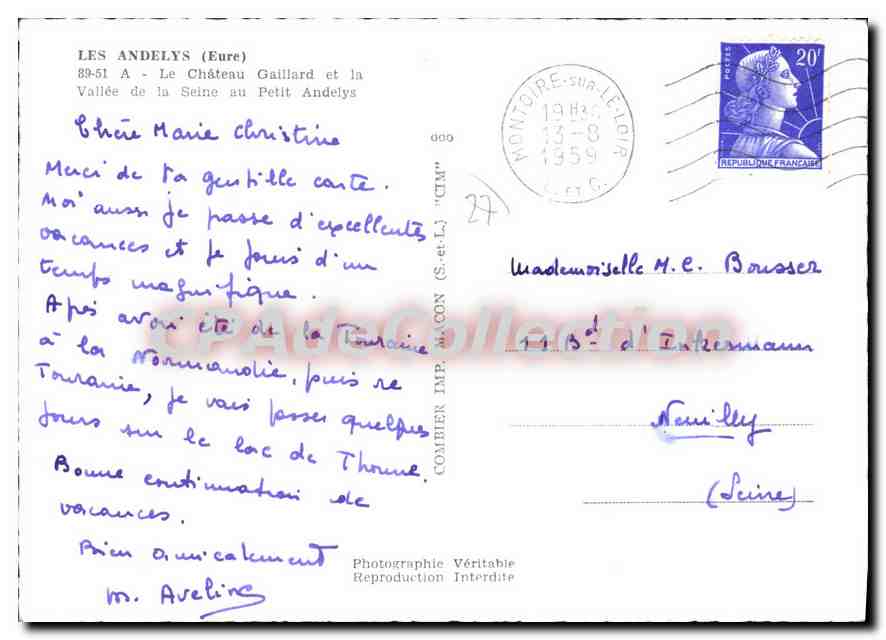 LES ANDELYS (Eure)
89-51 A - Le Château Gaillard et la
Vallée de la Seine au Petit Andelys
Chère Marie Christine
Merci de ta gentille carte.
Moi aussi je passe d'excellentes
vacances et je jouis d'un
temps magnifique.
Après avoir été de la Touraine
à la Normandie, puis re
Touraine, je vais passer quelques
jours sur le lac de Thoune.
Bonne continuation de
vacances.
Bien amicalement
M. Aveline
000
COMBIER IMP. MACON (S.-et-L.) "CIM"
Photographie Véritable
Reproduction Interdite
MONTOIRE-SUR-LE-LOIR
13-8
1959
POSTES
20F
REPUBLIQUE FRANÇAISE
27)
Mademoiselle M. C. Bousser
11 Bd d'Inkermann
Neuilly
(Seine)
CPAdeCollection